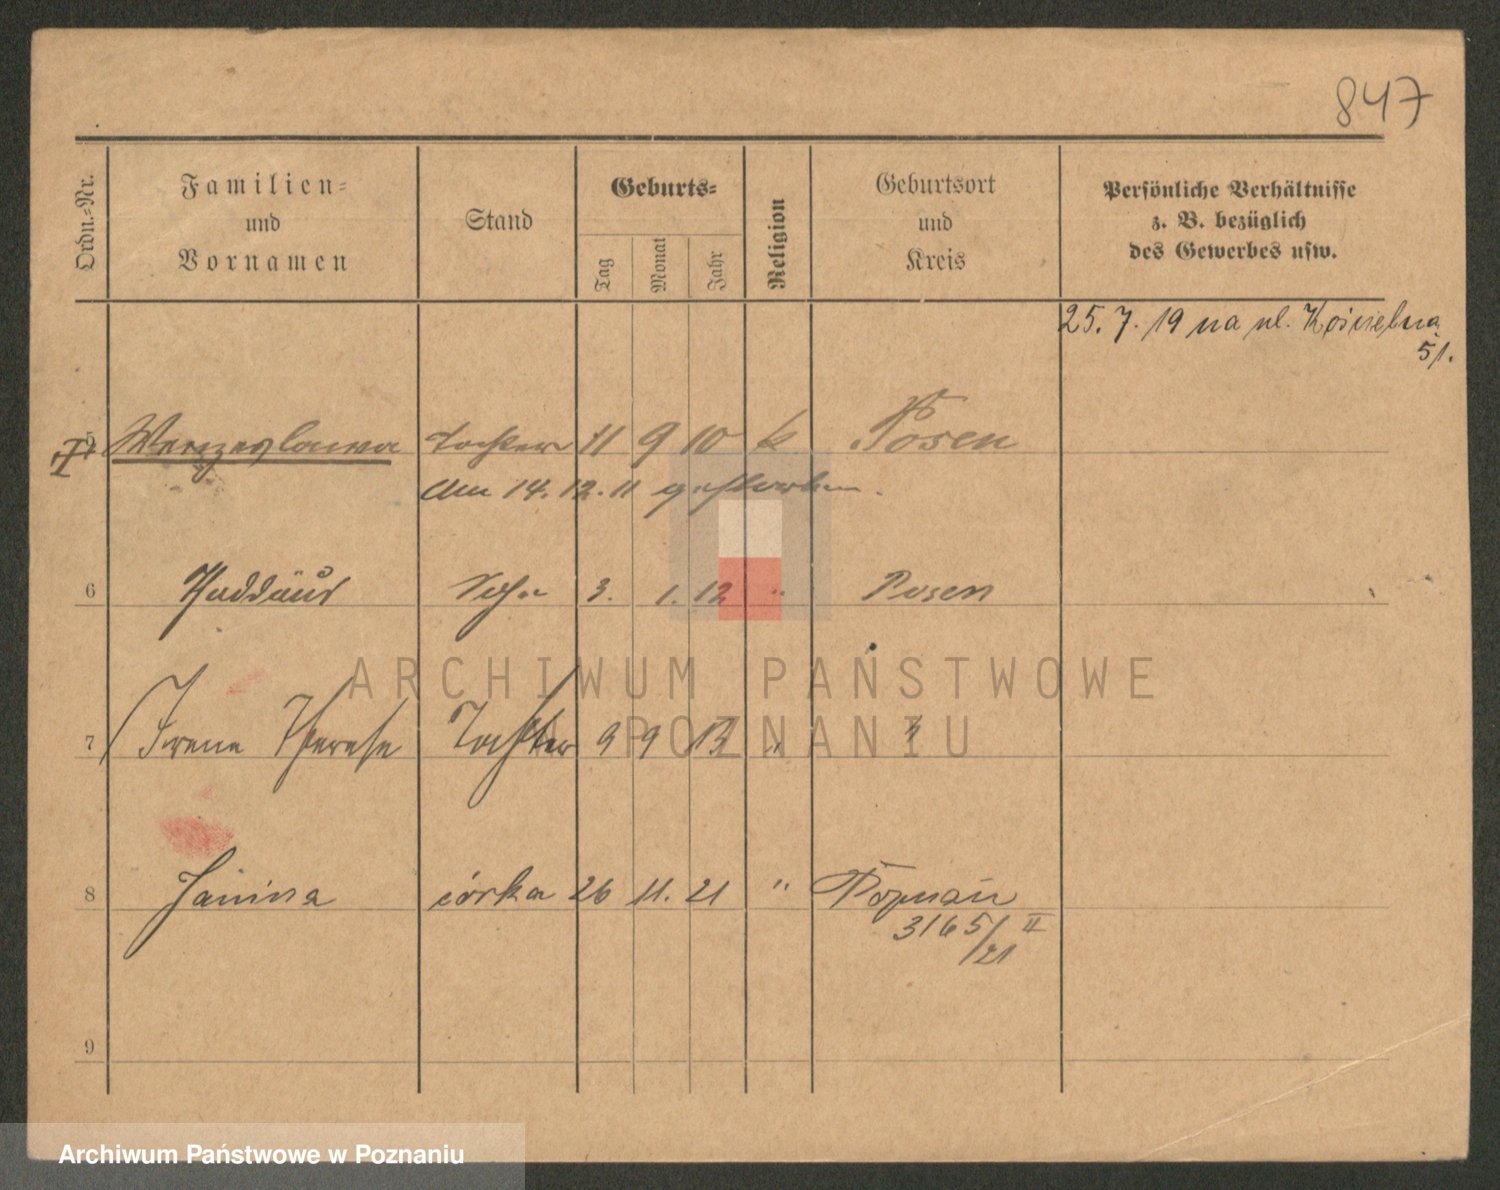 847
Ordn.=Nr.
Familien=
und
Vornamen
Stand
Geburts=
Tag
Monat
Jahr
Religion
Geburtsort
und
Kreis
Persönliche Verhältnisse
z. B. bezüglich
des Gewerbes usw.
25. 7. 19 na ul. Kościelna
51.
5 Tochter 11 9 10 k Posen
Am 14. 12. 11 gestorben.
6 Thaddäus Sohn 3. 1. 12 " Posen
ARCHIWUM PAŃSTWOWE
7 Irene Therese Tochter 9 9 13 " "
W POZNANIU
8 Janina córka 26 11. 21 " Poznań
3165/21 II
9
Archiwum Państwowe w Poznaniu